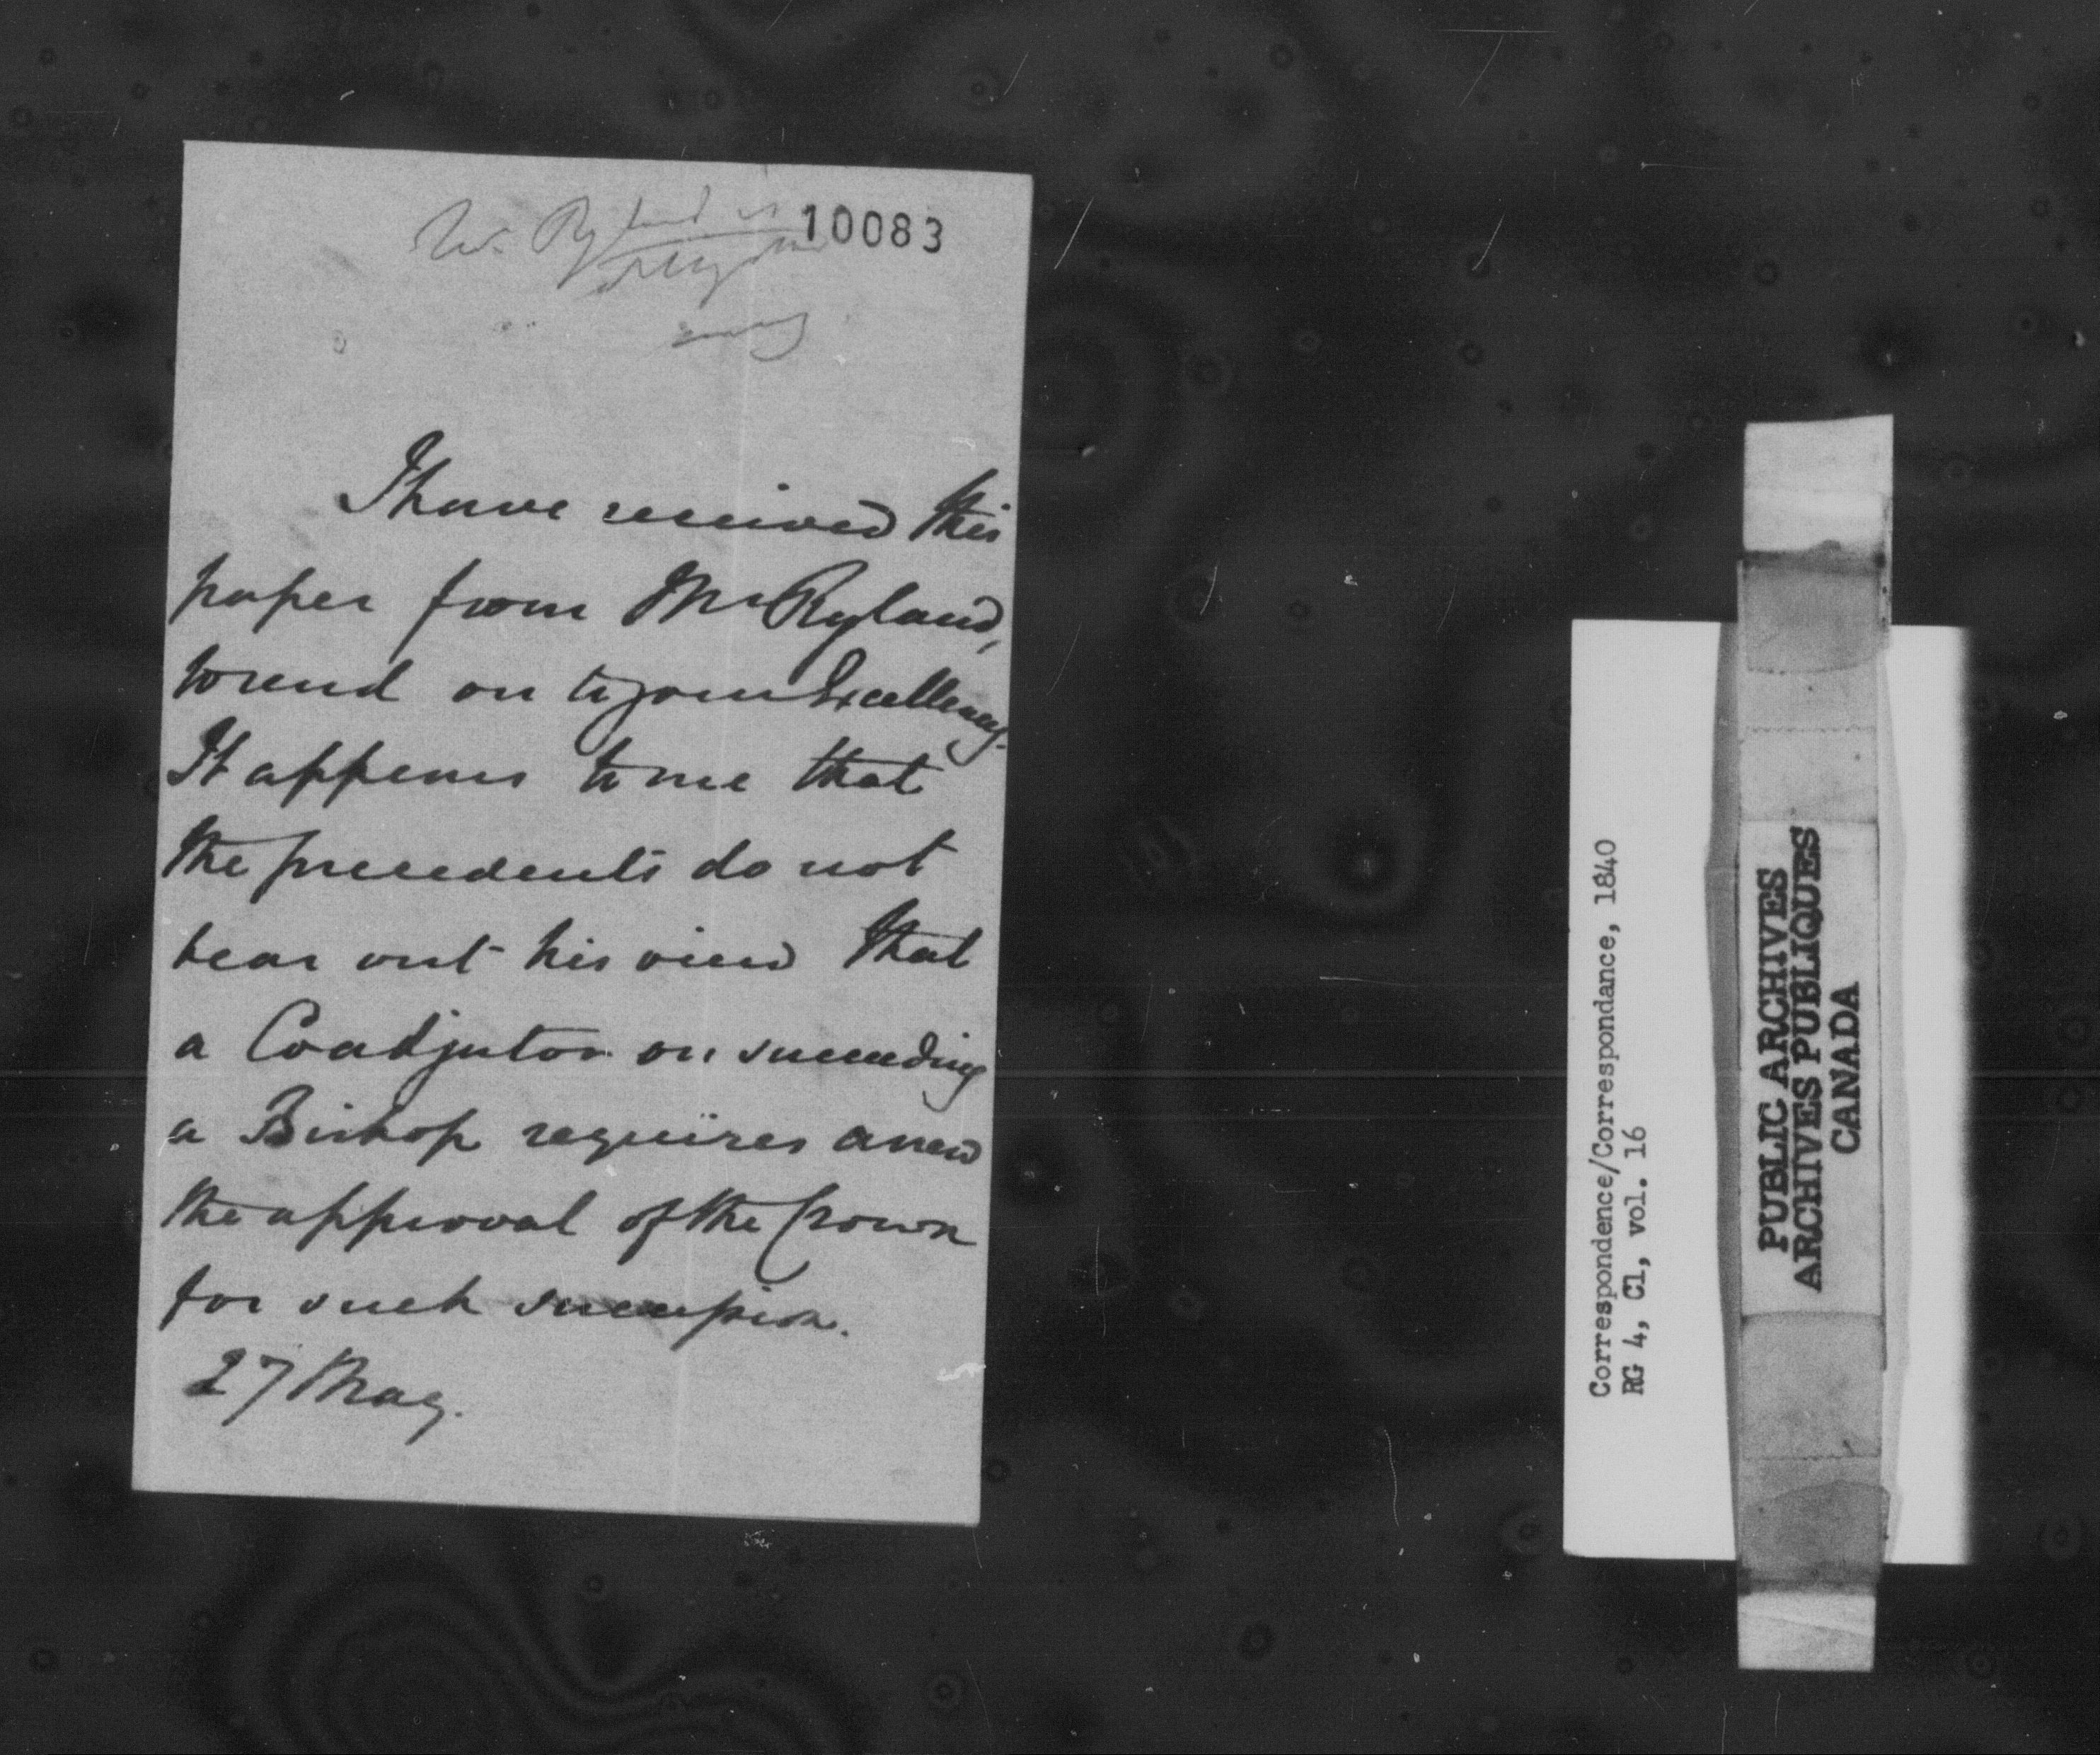 10083
Mr. Ryland is
wrong
I have received this
paper from Mr Ryland,
to send on to your Excellency.
It appears to me that
the precedents do not
bear out his view that
a Coadjutor on succeeding
a Bishop requires anew
the approval of the Crown
for such succession.
27 May.
Correspondence/Correspondance, 1840
RG 4, C1, vol. 16
PUBLIC ARCHIVES
ARCHIVES PUBLIQUES
CANADA